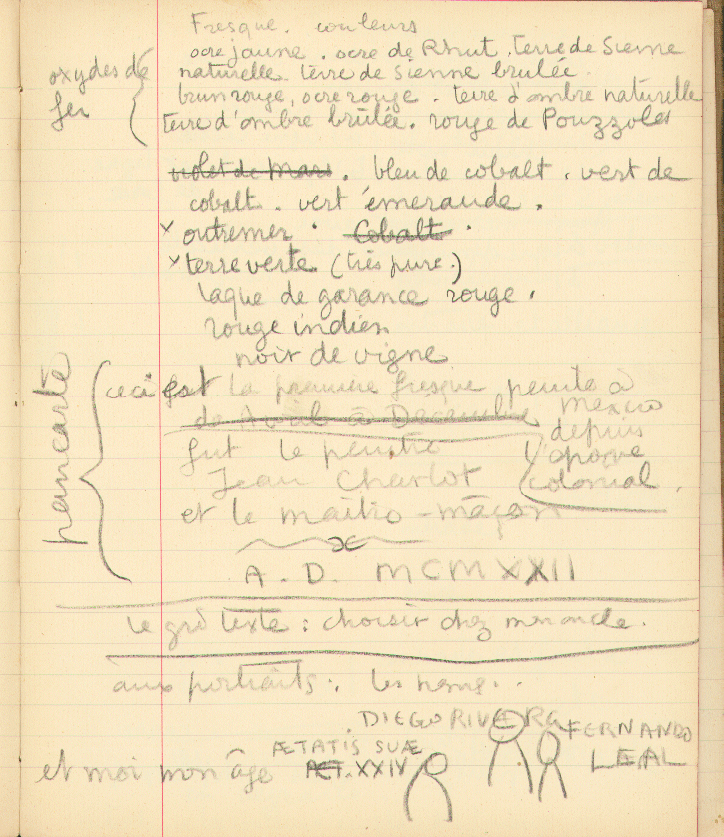 Fresque. couleurs
ocre jaune. ocre de Rhut. terre de Sienne
oxydes de fer
naturelle. terre de Sienne brulée.
brun rouge, ocre rouge. terre d'ombre naturelle
terre d'ombre brûlée. rouge de Pouzzoles
violet de Mars. bleu de cobalt. vert de
cobalt. vert émeraude.
x outremer. Cobalt.
x terre verte (très pure.)
laque de garance rouge.
rouge indien
noir de vigne
pancarte
ceci est la première fresque peinte à
Mexico
de Avril à Décembre
depuis
fut le peintre
l'époque
Jean Charlot
colonial.
et le maître-maçon
A. D. MCMXXII
le texte : choisir chez mon oncle.
aux portraits : les noms.
DIEGO RIVERA
FERNANDO
LEAL
ÆTATIS SUÆ
et moi mon âge ÆT. XXIV